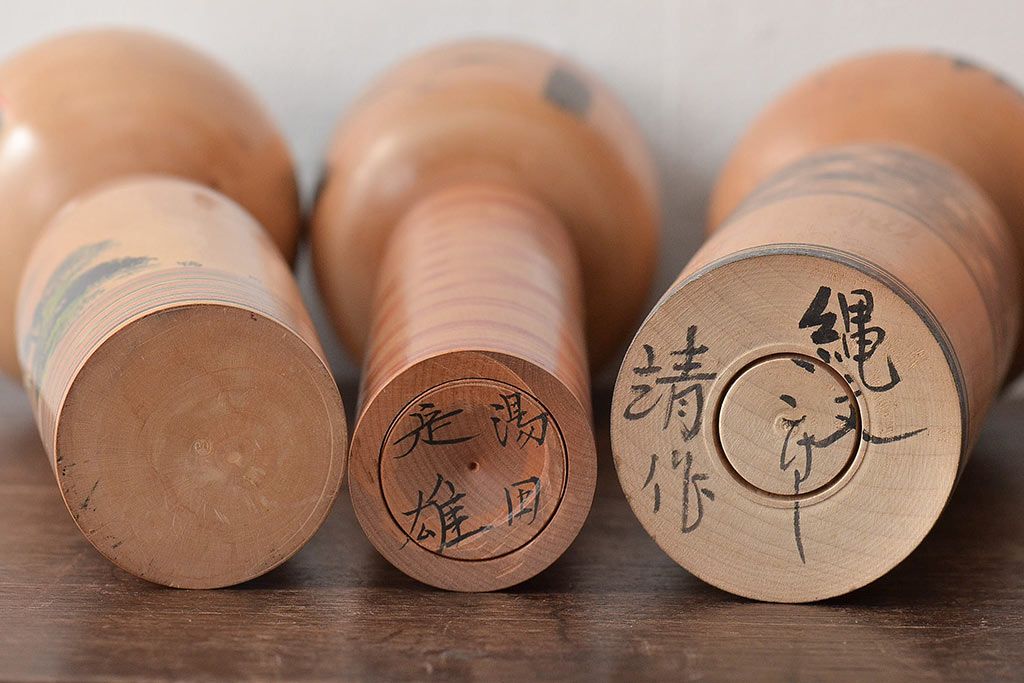 湯田
雄
縄文
清作